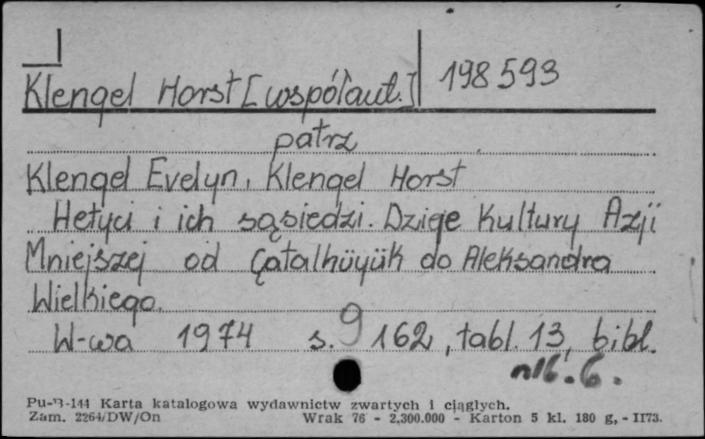 Klengel Horst [współaut.] 198593
patrz
Klengel Evelyn, Klengel Horst
Hetyci i ich sąsiedzi. Dzieje Kultury Azji
Mniejszej od Çatalhüyük do Aleksandra
Wielkiego.
W-wa 1974 s. 9 162, tabl. 13, bibl.
6.
Pu-B-144 Karta katalogowa wydawnictw zwartych i ciągłych.
Zam. 2264/DW/On Wrak 76 - 2,300.000 - Karton 5 kl. 180 g, - II73.